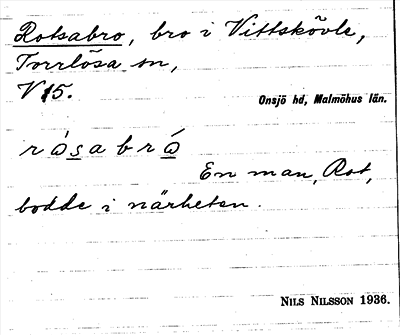 Rotsabro, bro i Vittskövle,
Torrlösa sn,
V15.
Onsjö hd, Malmöhus län.
En man, Rot,
bodde i närheten.
NILS NILSSON 1936.